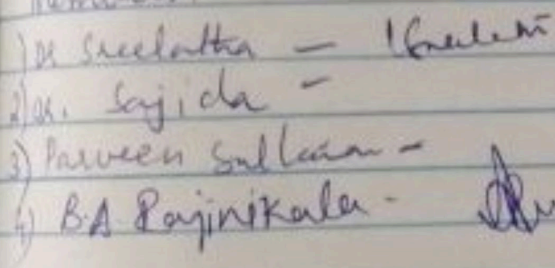 1) Dr Sreelatha –
2) Dr. Sajida –
3) Parveen Sultana –
4) B.A Rajinikala -